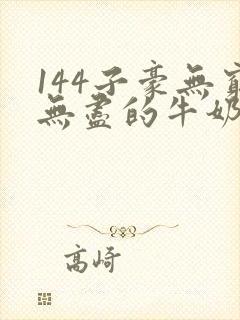 144子豪無窮
無盡的牛奶
高崎